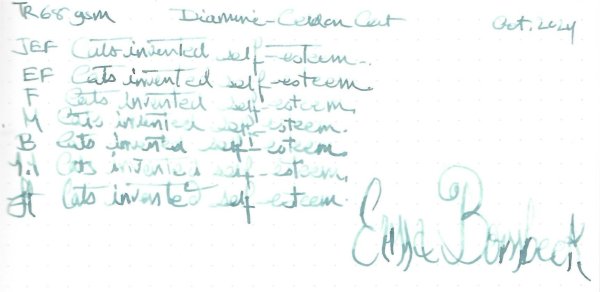 TR68gsm Diamine-Celadon Cat Oct. 2024
JEF Cats invented self-esteem.
EF Cats invented self-esteem.
F Cats invented self-esteem.
M Cats invented self-esteem.
B Cats invented self-esteem.
1.1 Cats invented self-esteem.
Cats invented self-esteem.
Erma Bombeck